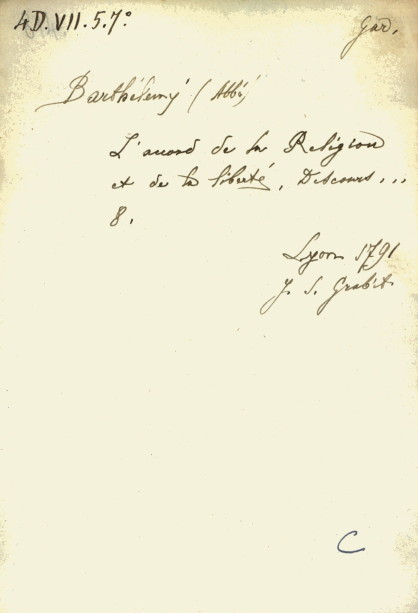 4D. VII. 5. 7°
Gad.
Barthélemy (Abbé)
L'accord de la Religion
et de la liberté, Discours...
8.
Lyon 1791
J. S. Grabit
C